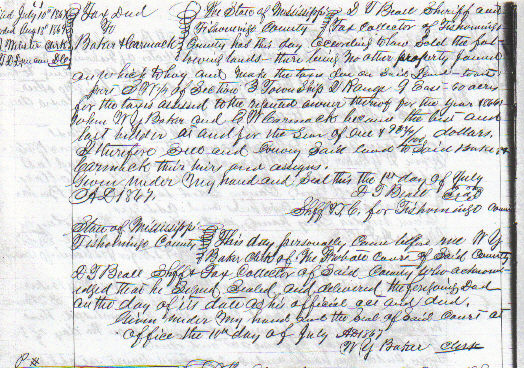 Filed July 10th 1867
Tax Deed
To
Baker & Carmack
The State of Mississippi
Tishomingo County
I J T Beall Sheriff and
Tax Collector of Tishomingo
County has this day according to law sold the fol-
lowing lands there being no other property found
on which to levy and make the taxes due on said land to wit
part S W 1/4 of Section 3 Township 2 Range 9 East 60 acres
for the taxes assessed to the reputed owner thereof for the year
when W Y Baker and E W Carmack became the best and
last bidder at and for the sum of one & /100 dollars.
I therefore sell and convey said land to said Baker &
Carmack their heirs and assigns.
Given under my hand and seal this the 1st day of July
A D 1867.
J T Beall Seal
Shff & T.C. for Tishomingo County
State of Mississippi
Tishomingo County
This day personally came before me W Y
Baker Clerk of the Probate Court of said County
J T Beall Shff & Tax Collector of said County who acknow-
ledged that he signed sealed and delivered the foregoing deed
on the day of its date as his official act and deed.
Given under my hand and the seal of said Court at
office the 10th day of July AD 1867
W Y Baker Clerk